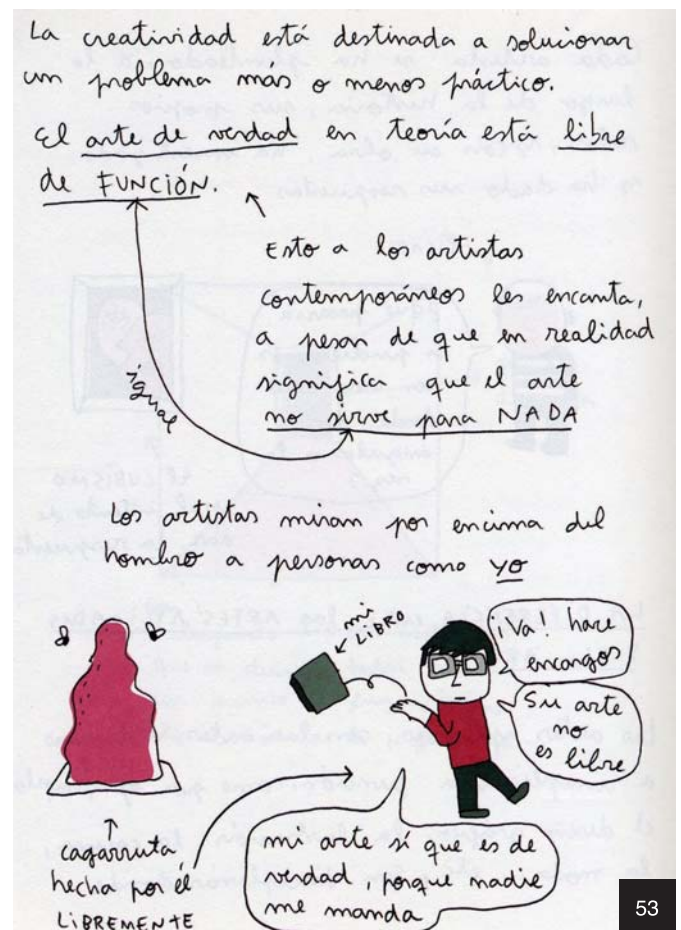 La creatividad está destinada a solucionar
un problema más o menos práctico.
El arte de verdad en teoría está libre
de FUNCIÓN.
Esto a los artistas
contemporáneos les encanta,
a pesar de que en realidad
significa que el arte
no sirve para NADA
igual
Los artistas miran por encima del
hombro a personas como yo
mi
LIBRO
¡Va! hace
encargos
Su arte
no
es libre
↑
cagarruta
hecha por él
LIBREMENTE
mi arte sí que es de
verdad, porque nadie
me manda
53